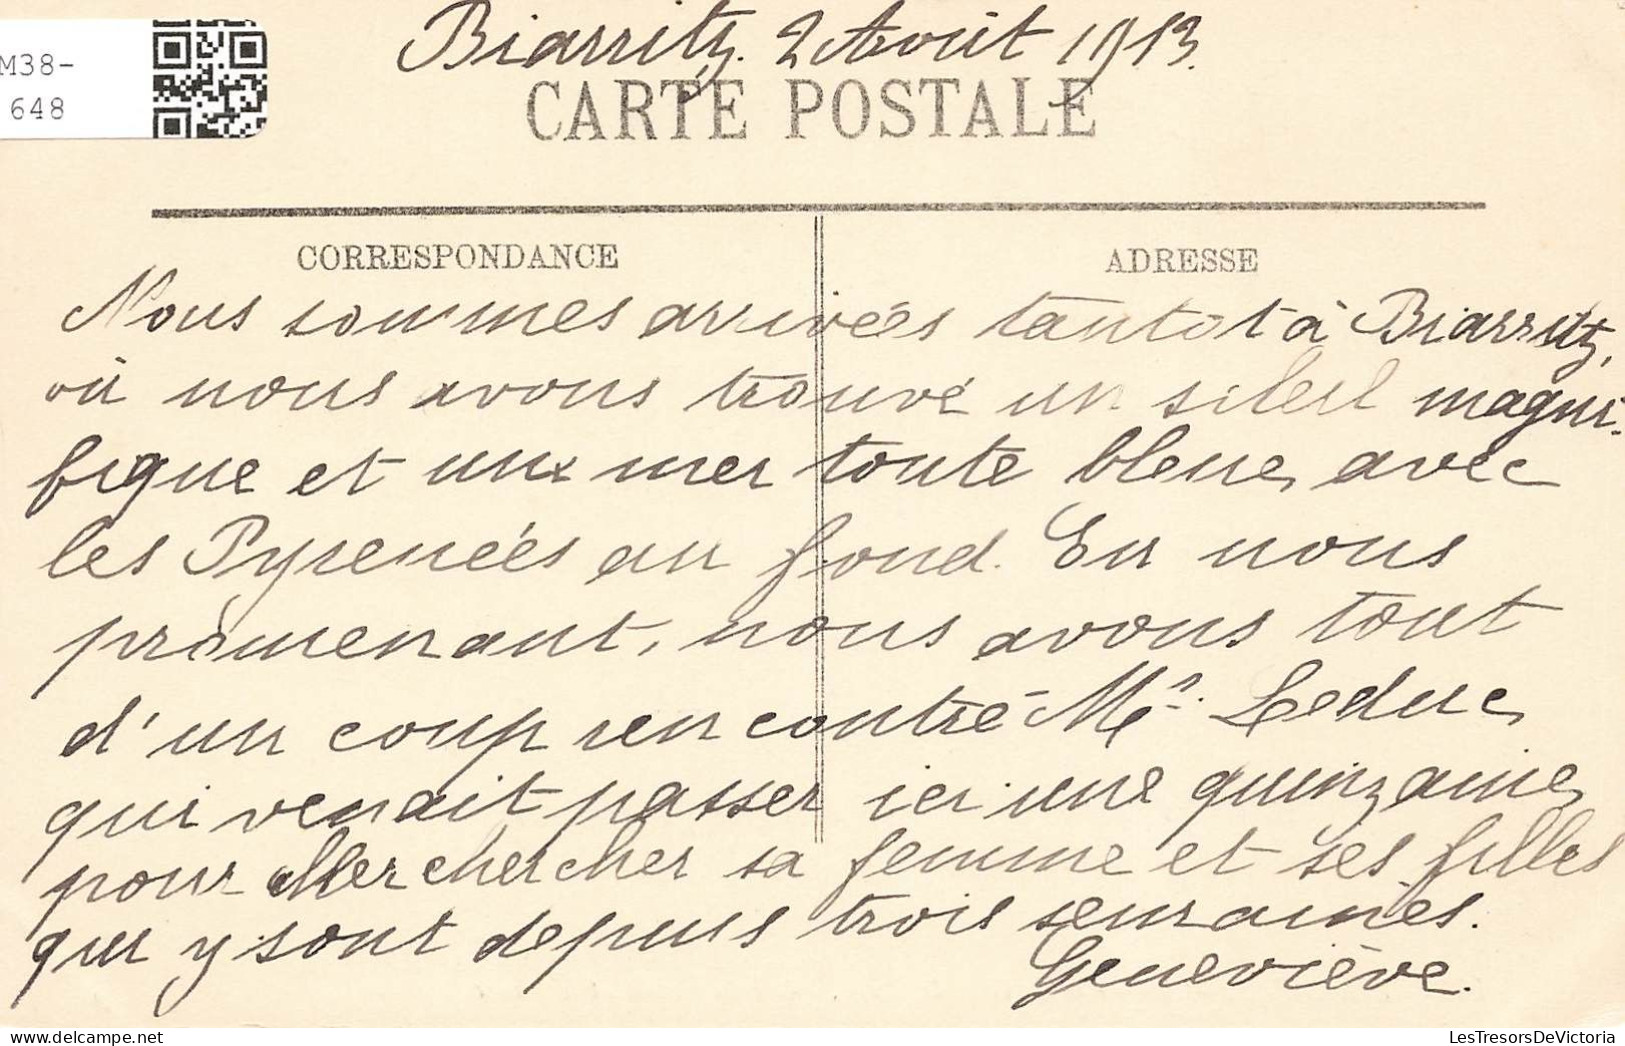 M38-
648
Biarritz. 2 Août 1913.
CARTE POSTALE
CORRESPONDANCE
ADRESSE
Nous sommes arrivées tantôt à Biarritz,
où nous avons trouvé un soleil magni-
fique et une mer toute bleue, avec
les Pyrenées au fond. En nous
promenant, nous avons tout
d'un coup rencontré Mr. Leduc,
qui venait passer ici une quinzaine,
pour chercher sa femme et ses filles
qui y sont depuis trois semaines.
Geneviève.
LesTresorsDeVictoria